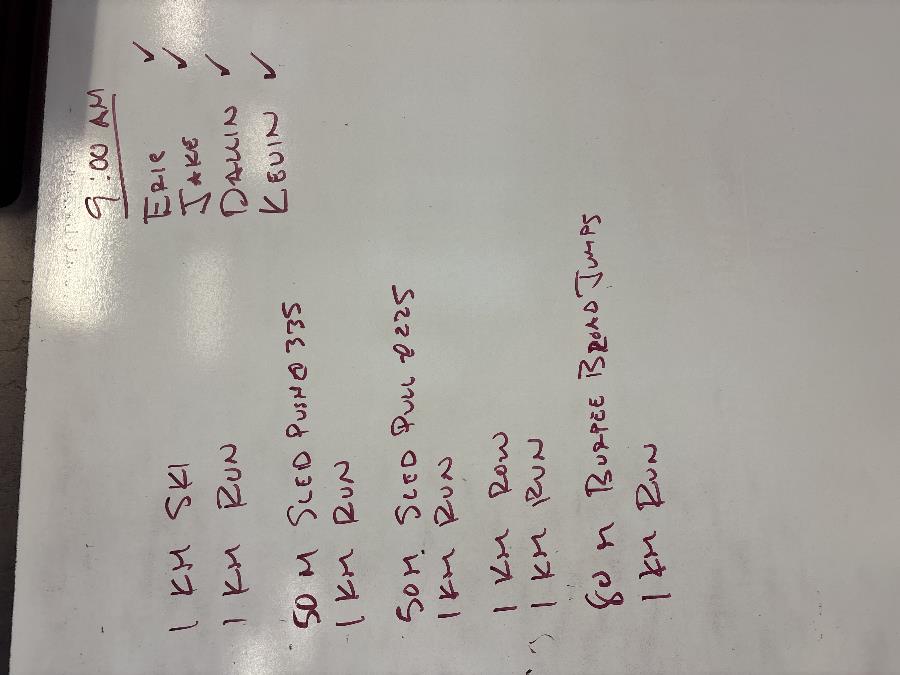 9:00 AM
ERIC ✓
JAKE ✓
DALLIN ✓
KEVIN ✓
1 KM SKI
1 KM RUN
50 M SLED PUSH @ 335
1 KM RUN
50 M SLED PULL @ 225
1 KM RUN
1 KM ROW
1 KM RUN
80 M BURPEE BROAD JUMPS
1 KM RUN